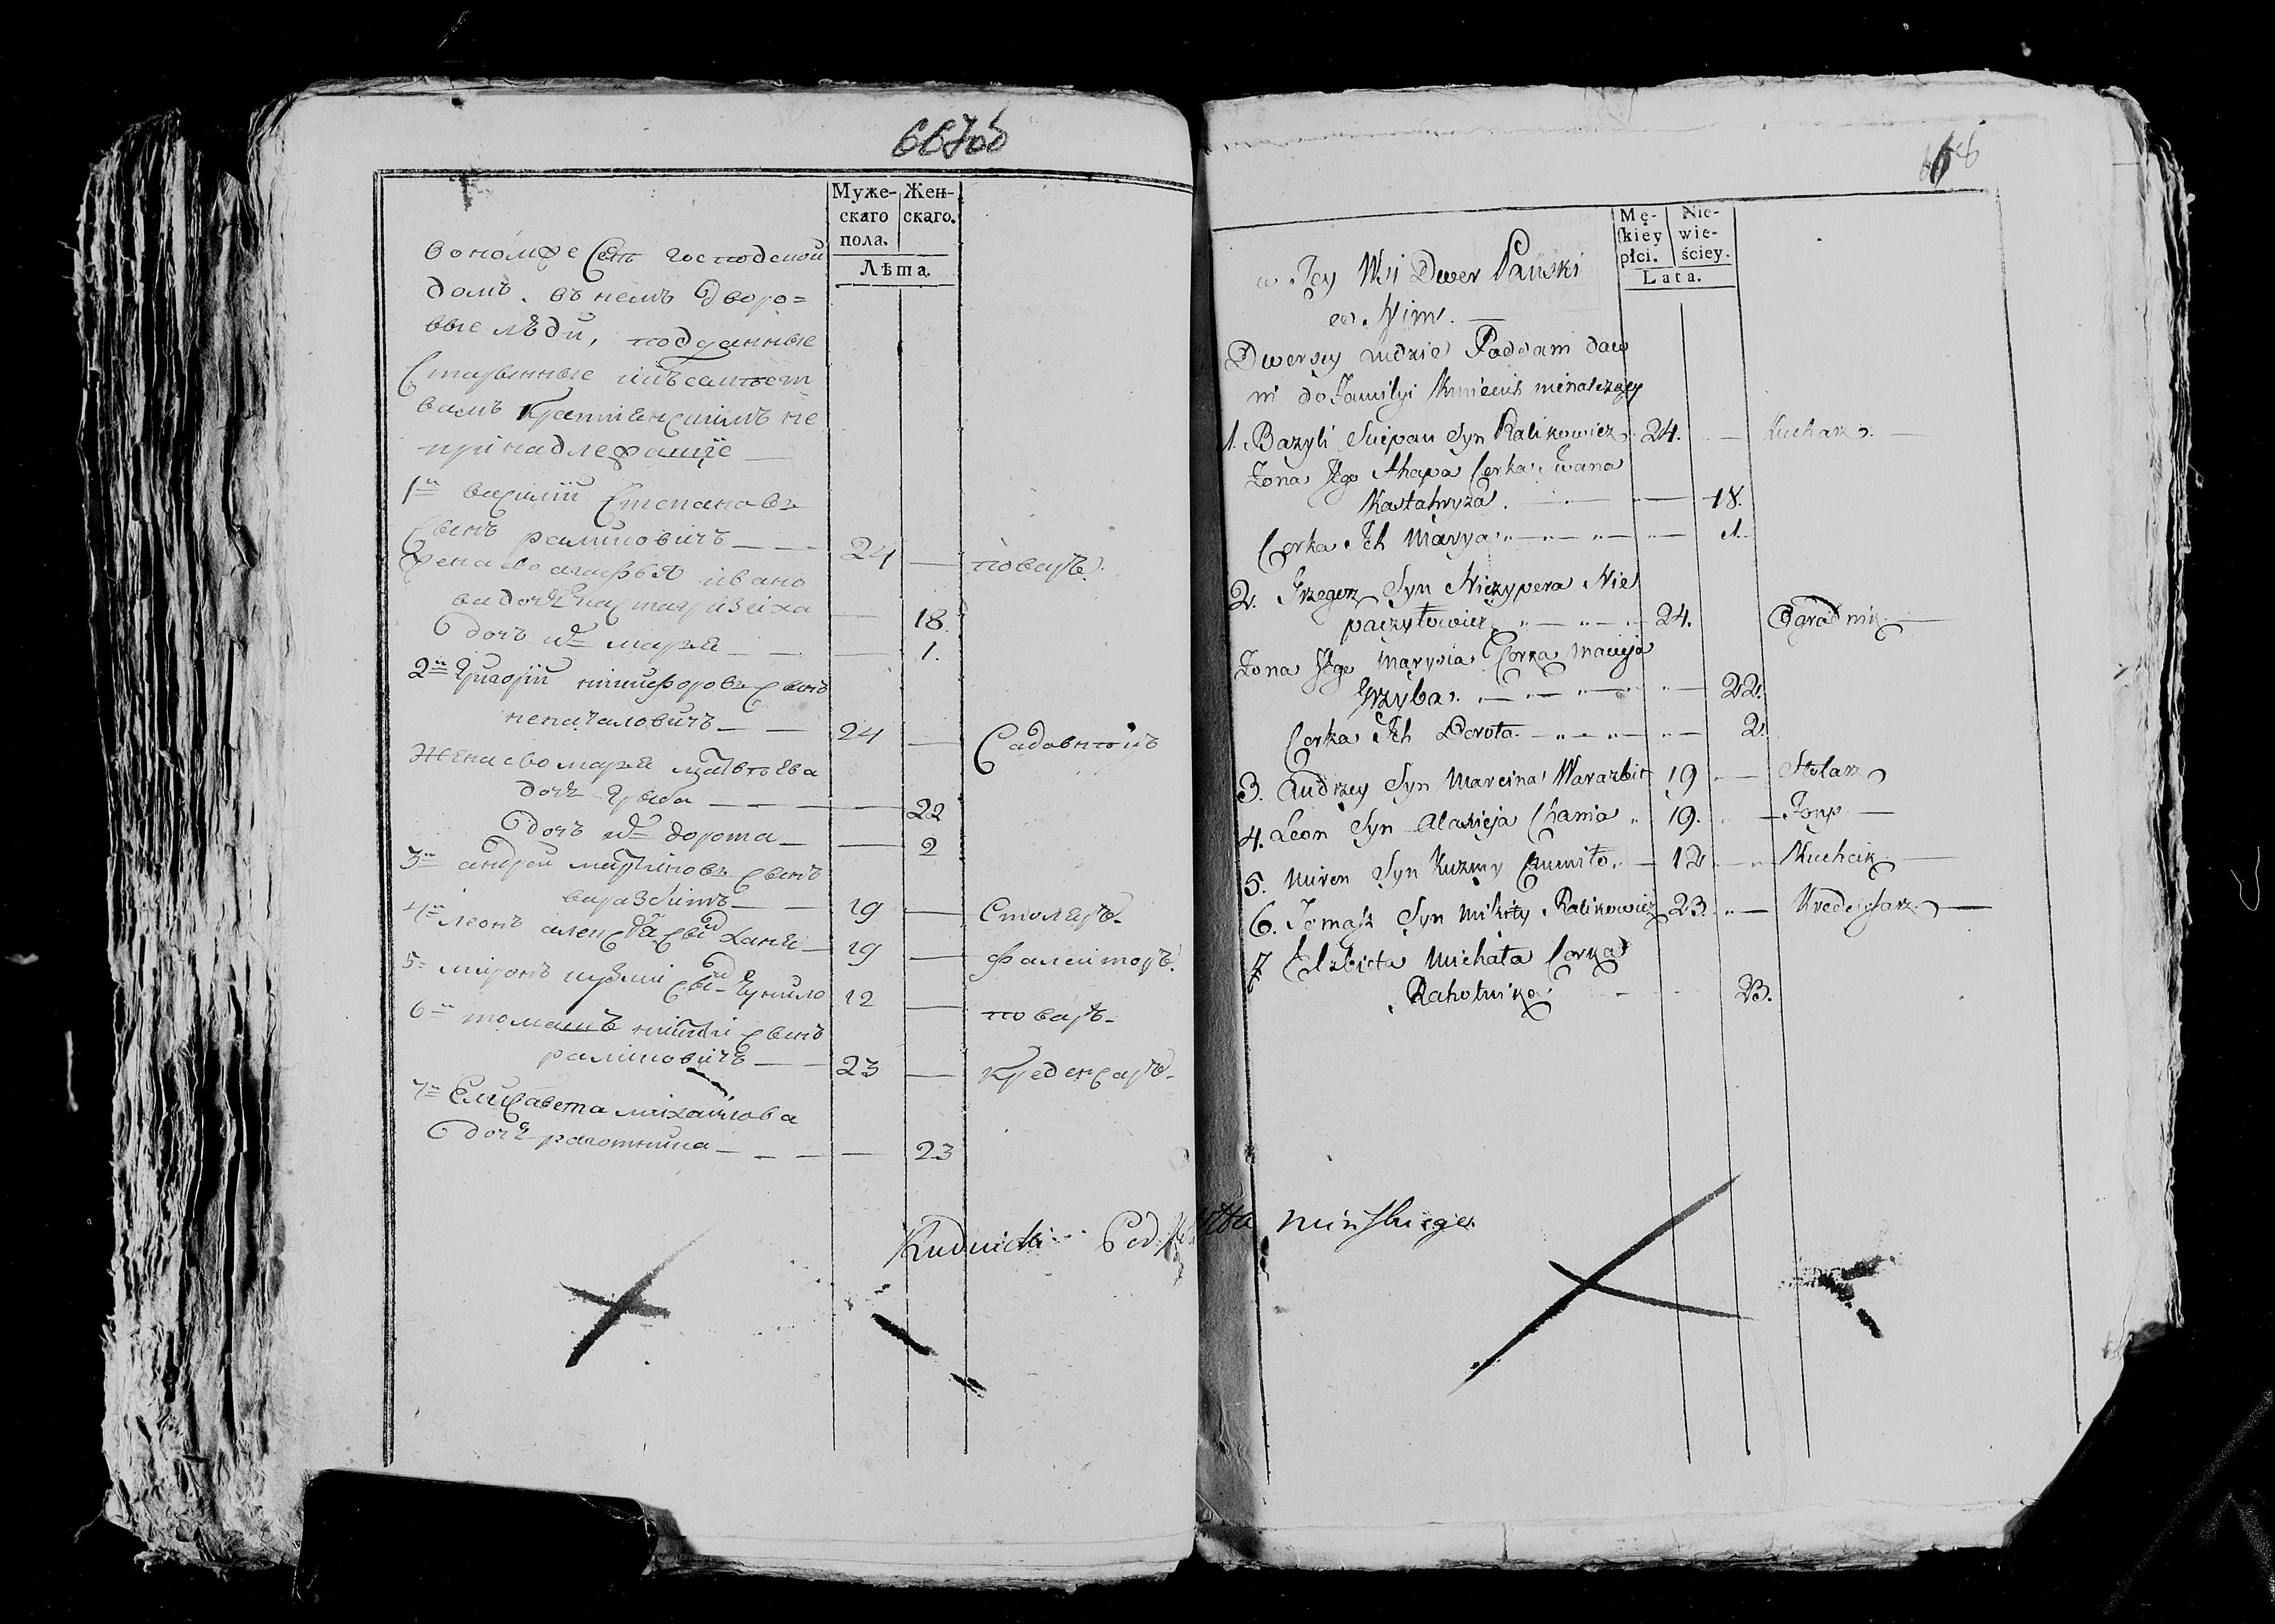 Муже-
скаго
пола.
Жен-
скаго.
Лѣта.
вономже Селе господской
домъ. въ немъ Дворо=
вые люди, подданные
Старинные
вамъ не
принадлежащїе —
1й василій Степановъ
Сынъ раликовичъ — — 24 — поваръ.
Жена его агафья ивано
ва дочъ — 18.
дочъ их марья — — — 1.
2й Григорій никифоровъ сынъ
непачаловичъ — — 24 — Садовникъ
Жена его марья матвѣева
дочъ Грыба — — — — 22
дочъ их дорота — — 2
3й андрей мартиновъ сынъ
варазбитъ — 19 — Столяръ.
4й Леонъ сынъ ханя — 19 — фалеиторъ.
5й миронъ кузми сынъ Чумило 12 — поваръ.
6й томашъ никити сынъ
раликовичъ — — 23 — креденсаръ.
7я Елисавета михайлова
дочъ рахотника — — — — 23
Mę-
ſkiey
płci.
Nie-
wie-
ściey.
Lata.
w Tey Wsi Dwor Pański
w Nim. —
Dworscy Ludzie Poddani daw
ni do Familyi nienalezący
1. Bazyli Sciepan Syn Ralikowicz 24. — Kucharz. —
Zona Jego Ahapa Corka Iwana
Kastahryza. — — 18.
Corka Ich Marya — — — — 1.
2. Grzegorz Syn Niczypera Nie
paczyłowicz — — — 24. Ogrodnik —
Zona Jego Marysia Corka Macieja
Grzyba. — — — — 22.
Corka Ich Dorota. — — — — 2.
3. Andrzey Syn Marcina Warazbit 19 — Stolarz
4. Leon Syn Alaxieja Chania 19. — Forys —
5. Miron Syn Kuzmy Czumiło. — 12 — Kuchcik —
6. Tomasz Syn Mikity Ralikowicz 23. — Kredensarz —
7 Elzbieta Michała Corka
Rahotnika — — 23.